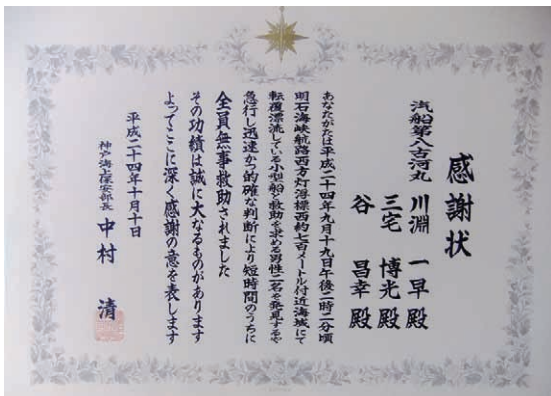 感謝状
汽船第八古河丸
川淵 一早 殿
三宅 博光 殿
谷 昌幸 殿
あなたがたは平成二十四年九月十九日午後二時二分頃
明石海峡航路西方灯浮標西約七百メートル付近海域にて
転覆漂流している小型船と救助を求める男性二名を発見するや
急行し迅速かつ的確な判断により短時間のうちに
全員無事救助されました
その功績は誠に大なるものがあります
よってここに深く感謝の意を表します
平成二十四年十月十日
神戸海上保安部長 中村 清